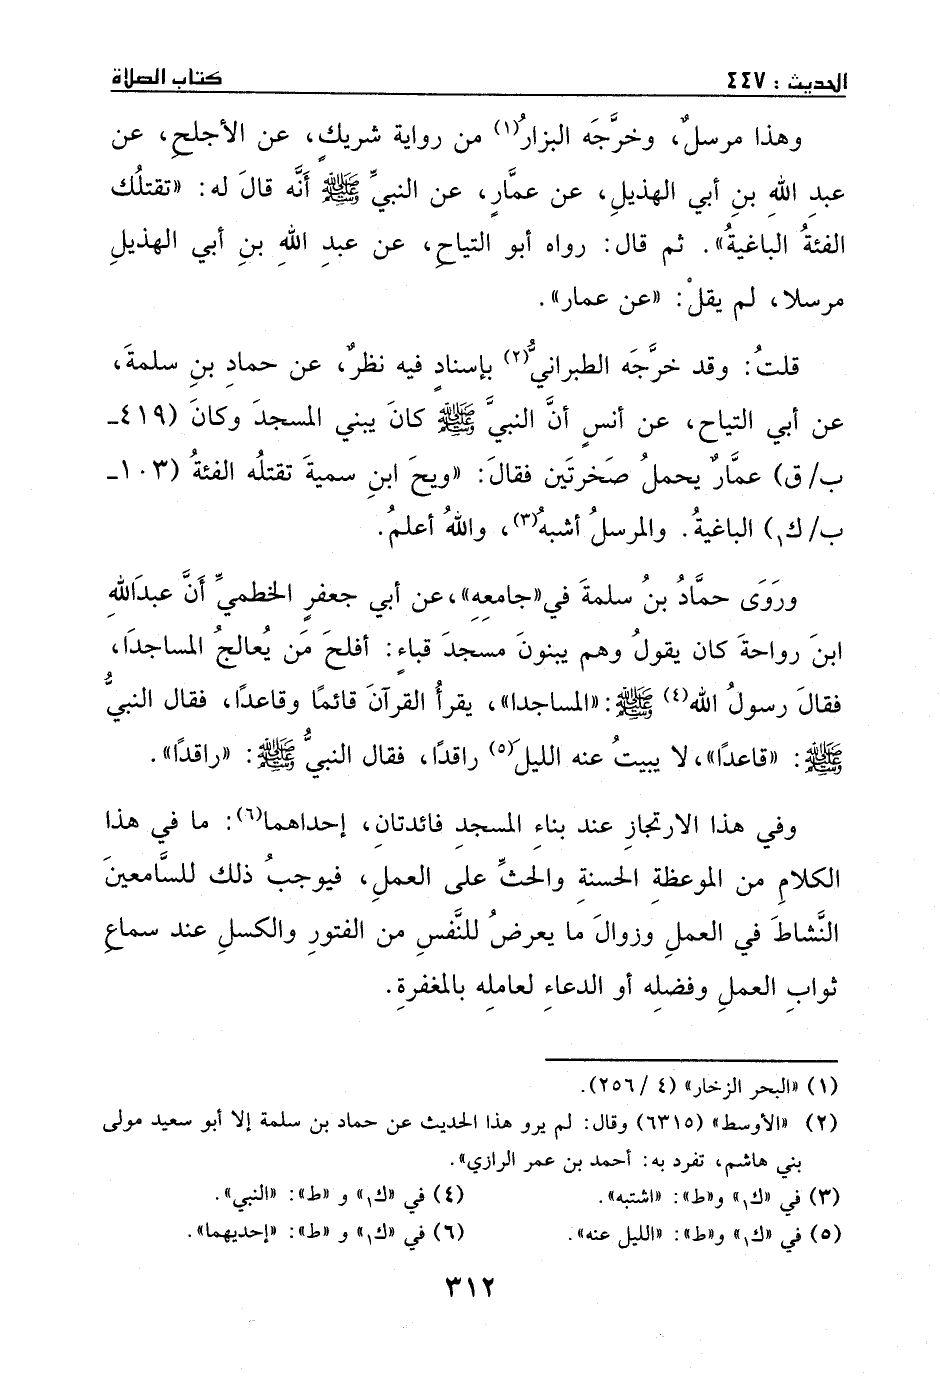 الحديث : ٤٤٧ كتاب الصلاة
وهذا مرسلٌ، وخرَّجَه البزارُ(١) من رواية شريكٍ، عن الأجلحِ، عن
عبدِ اللهِ بنِ أبي الهذيلِ، عن عمَّارٍ، عن النبيِّ ﷺ أَنَّه قالَ له: «تقتلُك
الفئةُ الباغيةُ». ثم قال: رواه أبو التياحِ، عن عبدِ اللهِ بنِ أبي الهذيلِ
مرسلا، لم يقلْ: «عن عمار».
قلتُ: وقد خرَّجَه الطبرانيُّ(٢) بإسنادٍ فيه نظرٌ، عن حمادِ بنِ سلمةَ،
عن أبي التياح، عن أنسٍ أنَّ النبيَّ ﷺ كانَ يبني المسجدَ وكانَ (٤١٩ـ
ب/ ق) عمَّارٌ يحملُ صَخرتَين فقالَ: «ويحَ ابنِ سميةَ تقتلُه الفئةُ (١٠٣ـ
ب/ ك١) الباغيةُ. والمرسلُ أشبهُ(٣)، واللهُ أعلمُ.
ورَوَى حمَّادُ بنُ سلمةَ في «جامعِهِ»، عن أبي جعفرٍ الخطميِّ أَنَّ عبدَاللهِ
ابنَ رواحةَ كان يقولُ وهم يبنونَ مسجدَ قباءٍ: أفلحَ مَن يُعالجُ المساجدَا،
فقالَ رسولُ الله(٤) ﷺ: «المساجدا»، يقرأُ القرآنَ قائمًا وقاعدًا، فقال النبيُّ
ﷺ: «قاعدًا»، لا يبيتُ عنه الليل(٥) راقدًا، فقال النبيُّ ﷺ: «راقدًا».
وفي هذا الارتجازِ عند بناءِ المسجدِ فائدتانِ، إحداهما(٦): ما في هذا
الكلامِ من الموعظةِ الحسنةِ والحثِّ على العملِ، فيوجبُ ذلك للسَّامعينَ
النَّشاطَ في العملِ وزوالَ ما يعرضُ للنَّفسِ من الفتورِ والكسلِ عند سماعِ
ثوابِ العملِ وفضلِه أو الدعاءِ لعاملِه بالمغفرةِ.
(١) «البحر الزخار» (٤ / ٢٥٦).
(٢) «الأوسط» (٦٣١٥) وقال: لم يرو هذا الحديث عن حماد بن سلمة إلا أبو سعيد مولى
بني هاشم، تفرد به: أحمد بن عمر الرازي».
(٣) في «ك١» و«ط»: «اشتبه». (٤) في «ك١» و «ط»: «النبي».
(٥) في «ك١» و«ط»: «الليل عنه». (٦) في «ك١» و «ط»: «إحديهما».
٣١٢